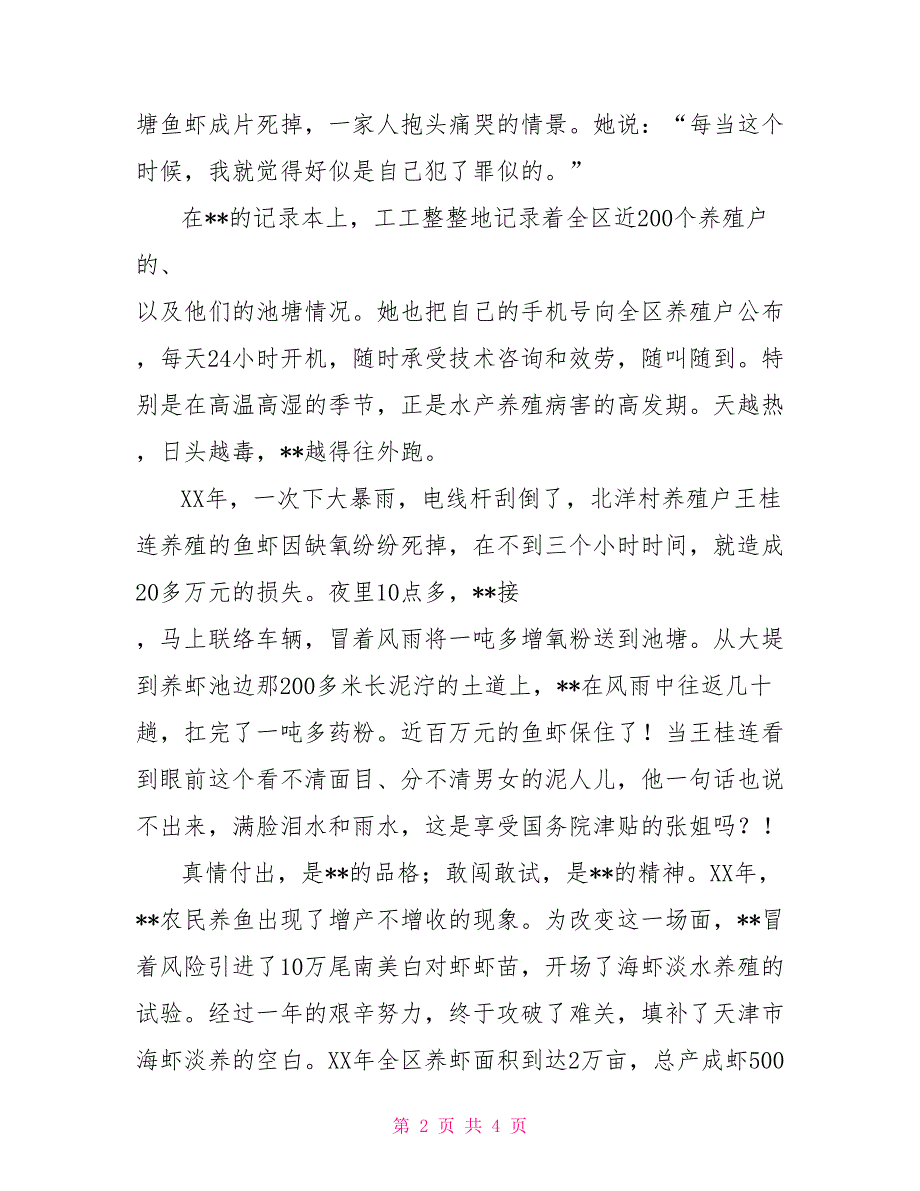 塘鱼虾成片死掉，一家人抱头痛哭的情景。她说：“每当这个
时候，我就觉得好似是自己犯了罪似的。”
在**的记录本上，工工整整地记录着全区近200个养殖户
的、
以及他们的池塘情况。她也把自己的手机号向全区养殖户公布
，每天24小时开机，随时承受技术咨询和效劳，随叫随到。特
别是在高温高湿的季节，正是水产养殖病害的高发期。天越热
，日头越毒，**越得往外跑。
XX年，一次下大暴雨，电线杆刮倒了，北洋村养殖户王桂
连养殖的鱼虾因缺氧纷纷死掉，在不到三个小时时间，就造成
20多万元的损失。夜里10点多，**接
，马上联络车辆，冒着风雨将一吨多增氧粉送到池塘。从大堤
到养虾池边那200多米长泥泞的土道上，**在风雨中往返几十
趟，扛完了一吨多药粉。近百万元的鱼虾保住了！当王桂连看
到眼前这个看不清面目、分不清男女的泥人儿，他一句话也说
不出来，满脸泪水和雨水，这是享受国务院津贴的张姐吗？！
真情付出，是**的品格；敢闯敢试，是**的精神。XX年，
**农民养鱼出现了增产不增收的现象。为改变这一场面，**冒
着风险引进了10万尾南美白对虾虾苗，开场了海虾淡水养殖的
试验。经过一年的艰辛努力，终于攻破了难关，填补了天津市
海虾淡养的空白。XX年全区养虾面积到达2万亩，总产成虾500
第 2 页 共 4 页